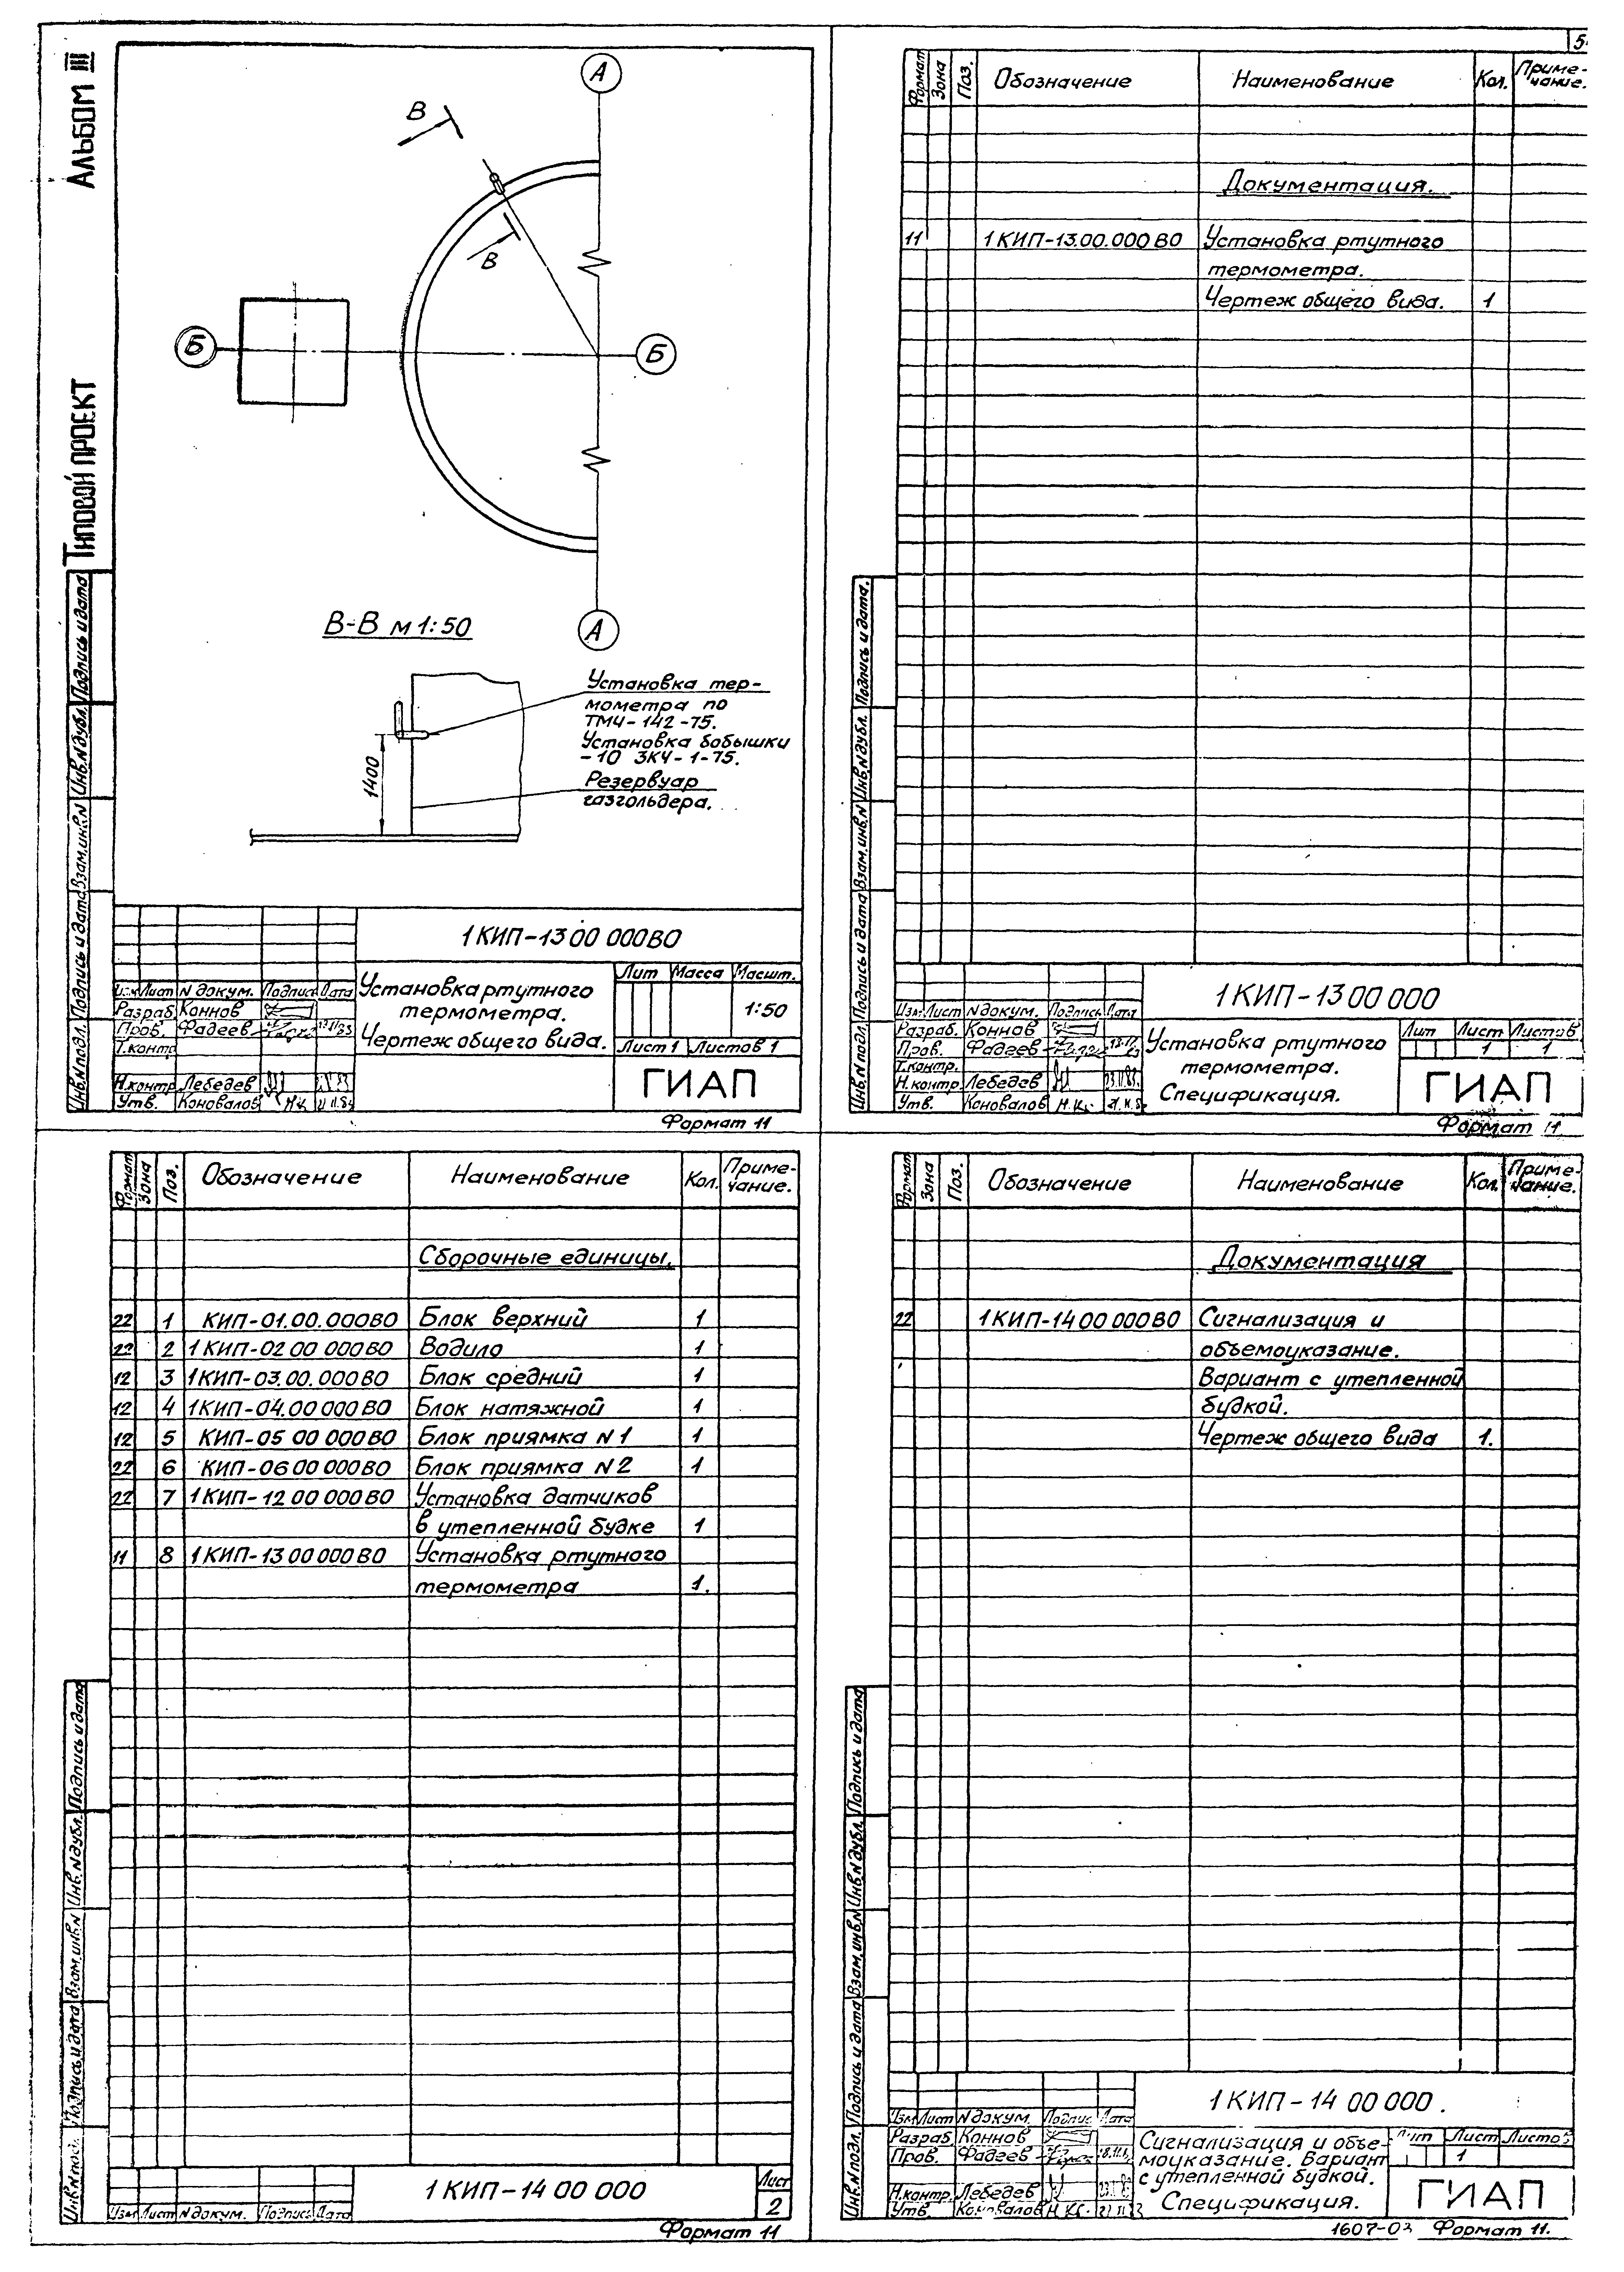 Альбом III
Типовой проект
А
В
В
Б
Б
А
В-В м 1:50
Установка тер-
мометра по
ТМ4-142-75.
Установка бобышки
-10 ЗК4-1-75.
Резервуар
газгольдера.
1400
Инв.N подл. Подпись и дата Взам.инв.N Инв.N дубл. Подпись и дата
1КИП-13 00 000ВО
Изм Лист N докум. Подпись Дата
Разраб. Коннов
Пров. Фадеев
Т.контр
Н.контр. Лебедев
Утв. Коновалов
Установка ртутного
термометра.
Чертеж общего вида.
Лит Масса Масшт.
1:50
Лист 1 Листов 1
ГИАП
Формат 11
Формат Зона Поз. Обозначение Наименование Кол. Приме-
чание.
Документация.
11 1КИП-13.00.000 ВО Установка ртутного
термометра.
Чертеж общего вида. 1
Инв.N подл. Подпись и дата Взам.инв.N Инв.N дубл. Подпись и дата.
1КИП-13 00 000
Изм Лист N докум. Подпись Дата
Разраб. Коннов
Пров. Фадеев
Т.контр.
Н.контр. Лебедев
Утв. Коновалов
Установка ртутного
термометра.
Спецификация.
Лит Лист Листов
1 1
ГИАП
Формат 11
Формат Зона Поз. Обозначение Наименование Кол. Приме-
чание.
Сборочные единицы.
22 1 КИП-01.00.000ВО Блок верхний 1
22 2 1КИП-02 00 000ВО Водило 1
12 3 1КИП-03.00.000ВО Блок средний 1
12 4 1КИП-04.00 000ВО Блок натяжной 1
12 5 КИП-05 00 000ВО Блок приямка N1 1
22 6 КИП-06 00 000ВО Блок приямка N2 1
22 7 1КИП-12 00 000ВО Установка датчиков
в утепленной будке 1
11 8 1КИП-13 00 000ВО Установка ртутного
термометра 1.
Инв.N подл. Подпись и дата Взам.инв.N Инв.N дубл. Подпись и дата
Изм Лист N докум. Подпись Дата
1КИП-14 00 000
Лист
2
Формат 11
Формат Зона Поз. Обозначение Наименование Кол. Приме-
чание.
Документация
22 1КИП-14 00 000ВО Сигнализация и
объемоуказание.
Вариант с утепленной
будкой.
Чертеж общего вида 1.
Инв.N подл. Подпись и дата Взам.инв.N Инв.N дубл. Подпись и дата
1КИП-14 00 000.
Изм Лист N докум. Подпис Дата
Разраб Коннов
Пров. Фадеев
Н.контр. Лебедев
Утв. Коновалов
Сигнализация и объе-
моуказание. Вариант
с утепленной будкой.
Спецификация.
Лит Лист Листов
1
ГИАП
Формат 11.